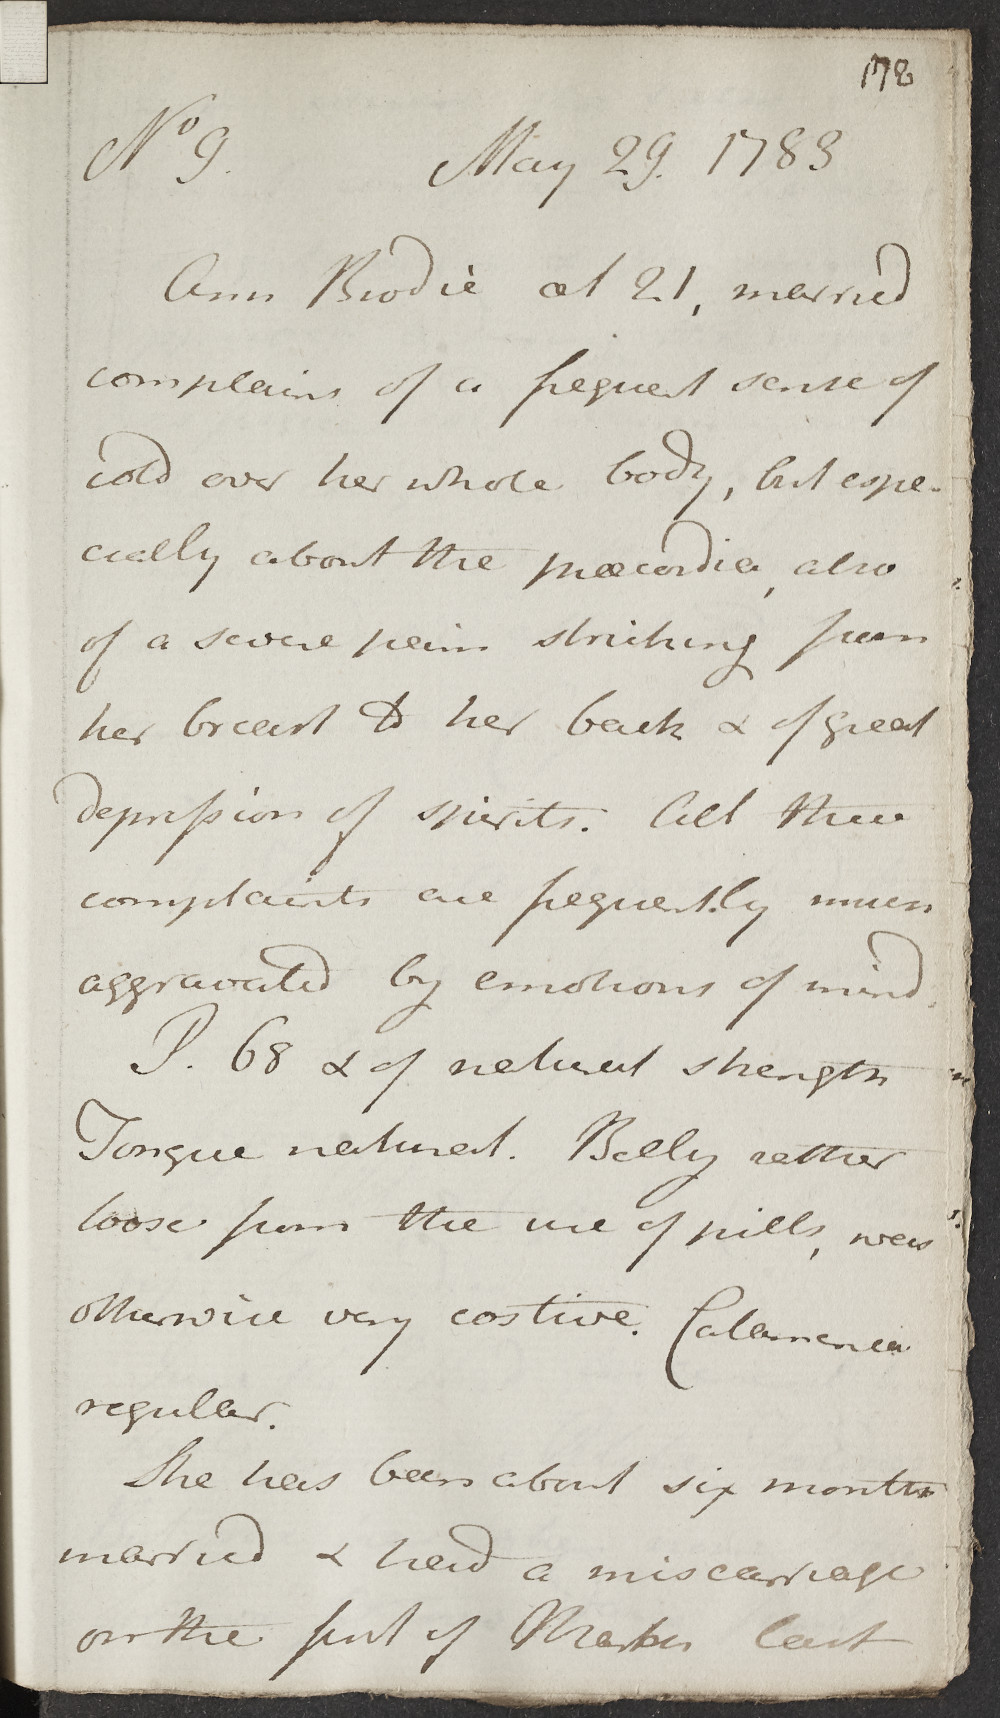 178
No 9. May 29. 1783
Ann Brodie æt 21, married
complains of a frequent sense of
cold over her whole body, but espe-
cially about the præcordia, also
of a severe pain striking from
her breast to her back & of great
depression of spirits. All these
complaints are frequently much
aggravated by emotions of mind.
P. 68 & of natural strength
Tongue natural. Belly rather
loose from the use of pills, was
otherwise very costive. Catamenia
regular.
She has been about six months
married & had a miscarriage
on the first of March last